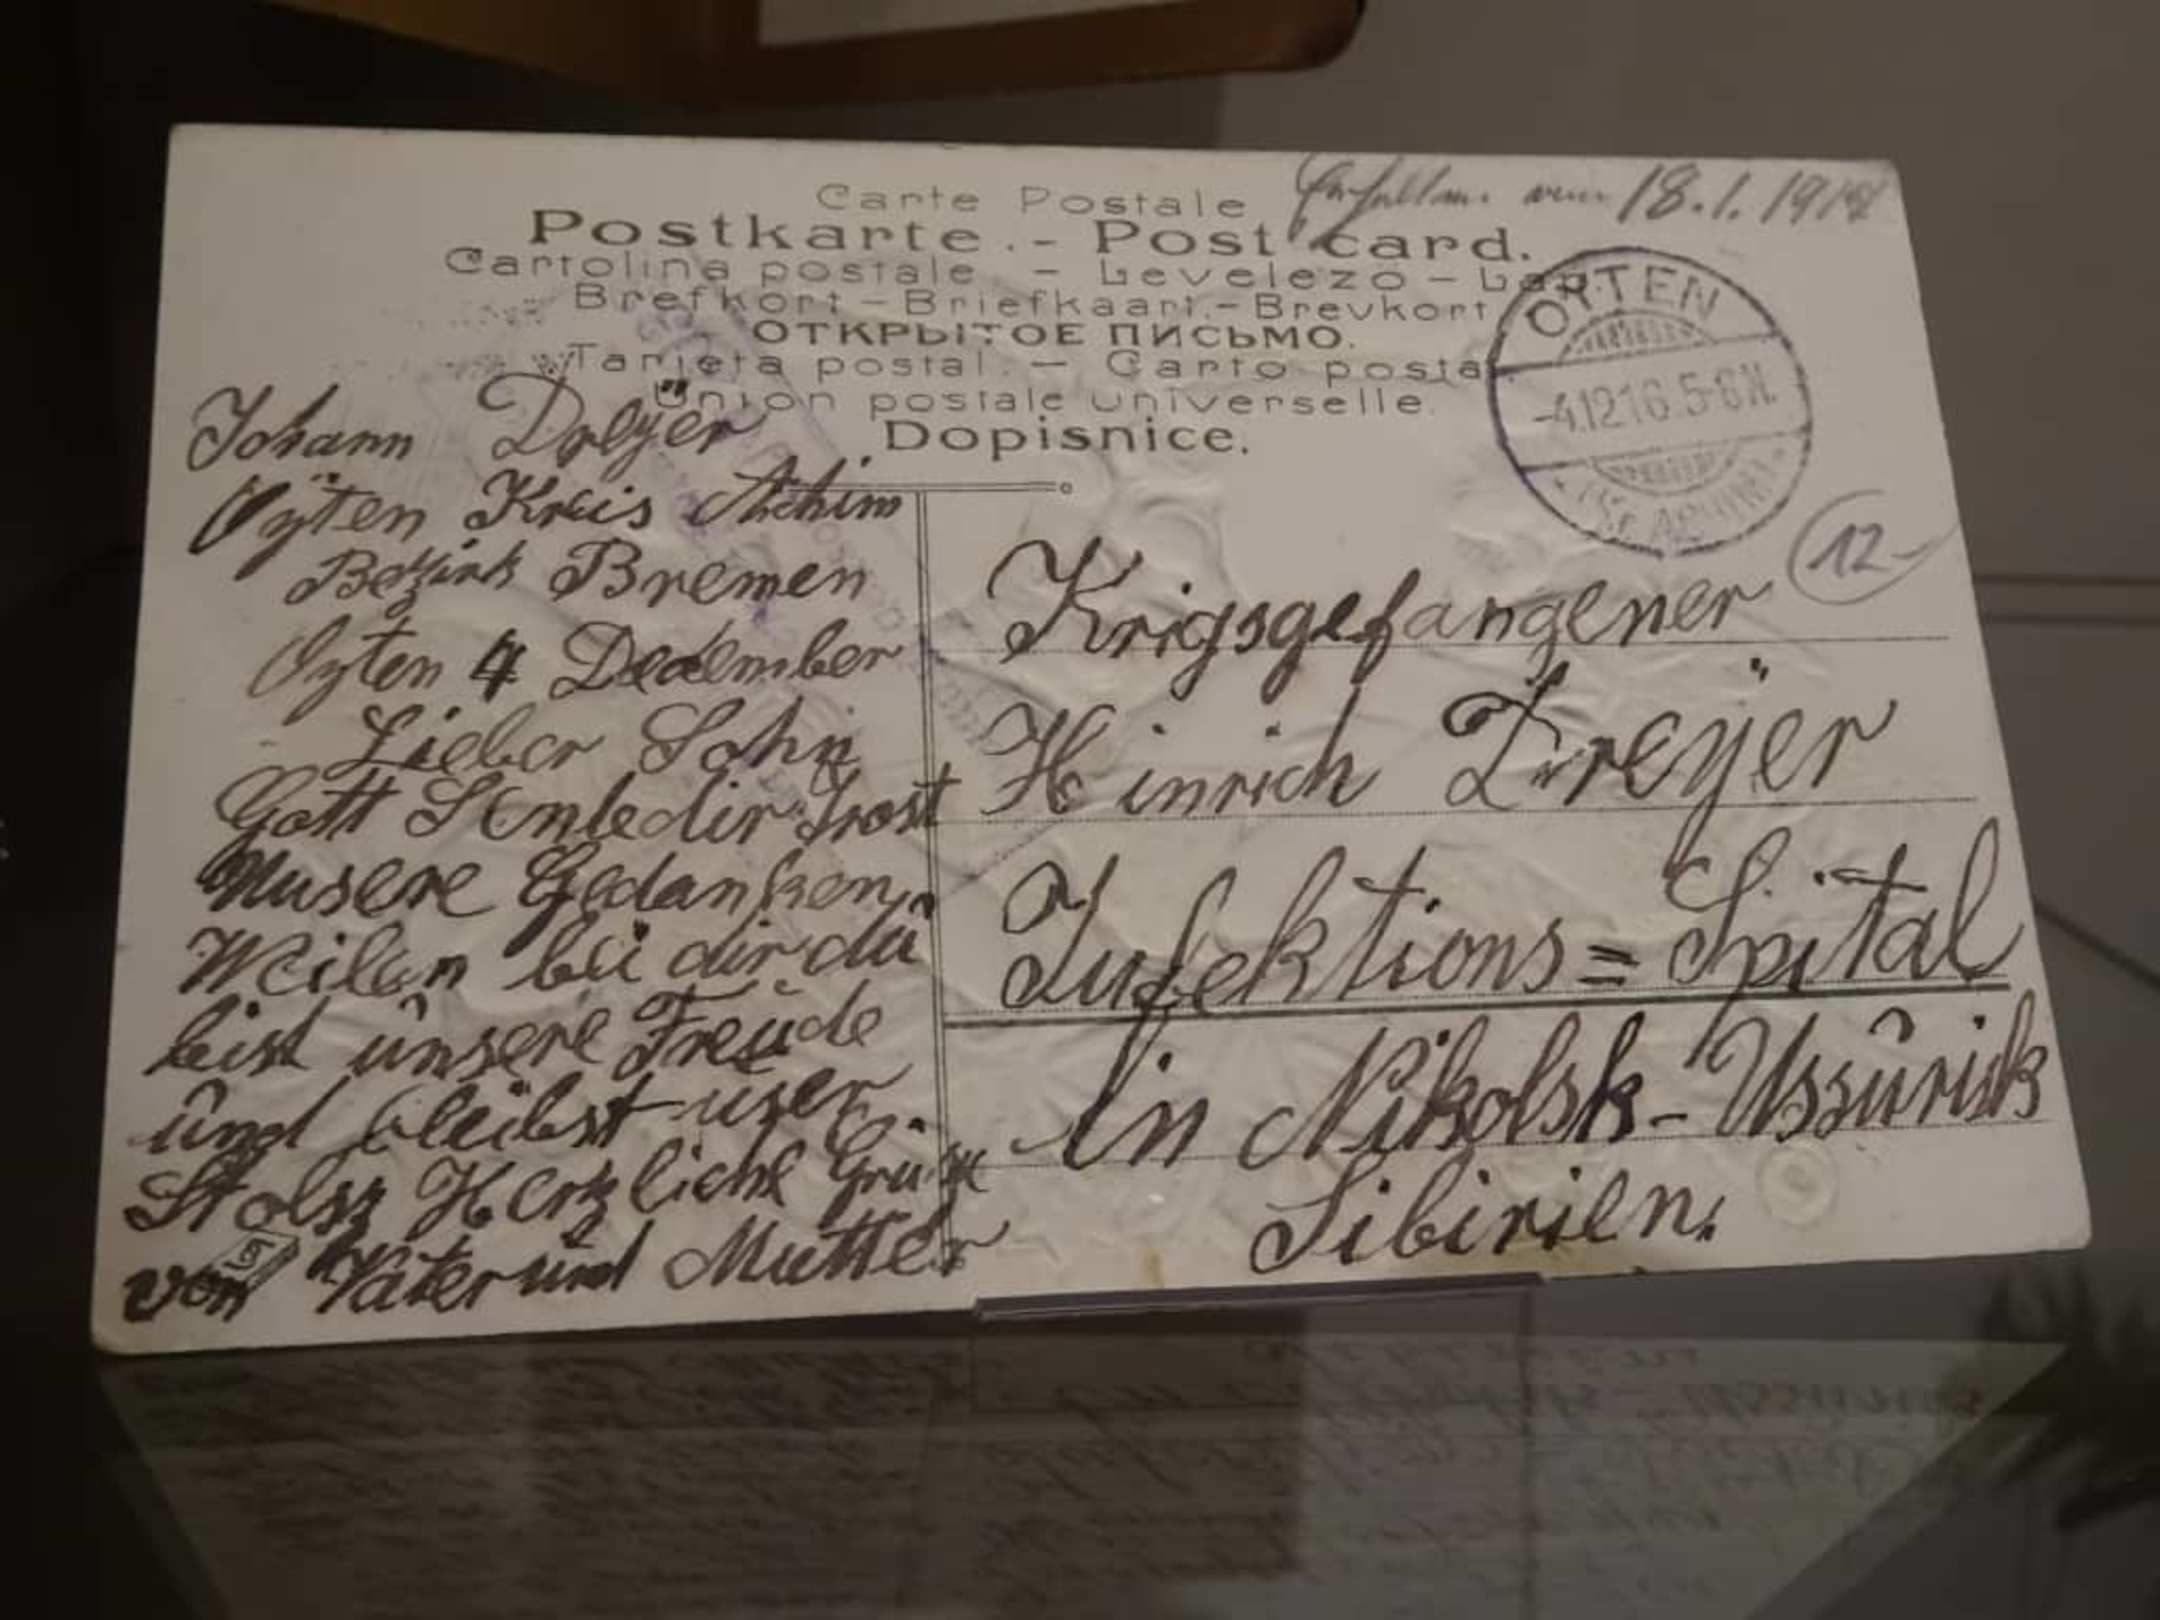 Carte Postale
Postkarte. - Post card.
Cartolina postale - Levelezo - Lap.
Brefkort - Briefkaart. - Brevkort
ОТКРЫТОЕ ПИСЬМО.
Tarjeta postal. - Carto posta
Union postale universelle.
Dopisnice.
18.1.191
OYTEN
-4.12.16.5-6N.
ACHIM
12-
Johann Dreÿer
Oyten Kreis Achim
Bezirk Bremen
Oyten 4 Dezember
Lieber Sohn
Gott Senke dir Trost
Unsere Gedanken
Weilen bei dir du
bist unsere Freude
und bleibst unser
Stolsz Hertzliche Grüsze
von Vater und Mutter
Krigsgefangener
Hinrich Dreÿer
Infektions=Spital
In Nikolsk-Ussurisk
Sibirien.